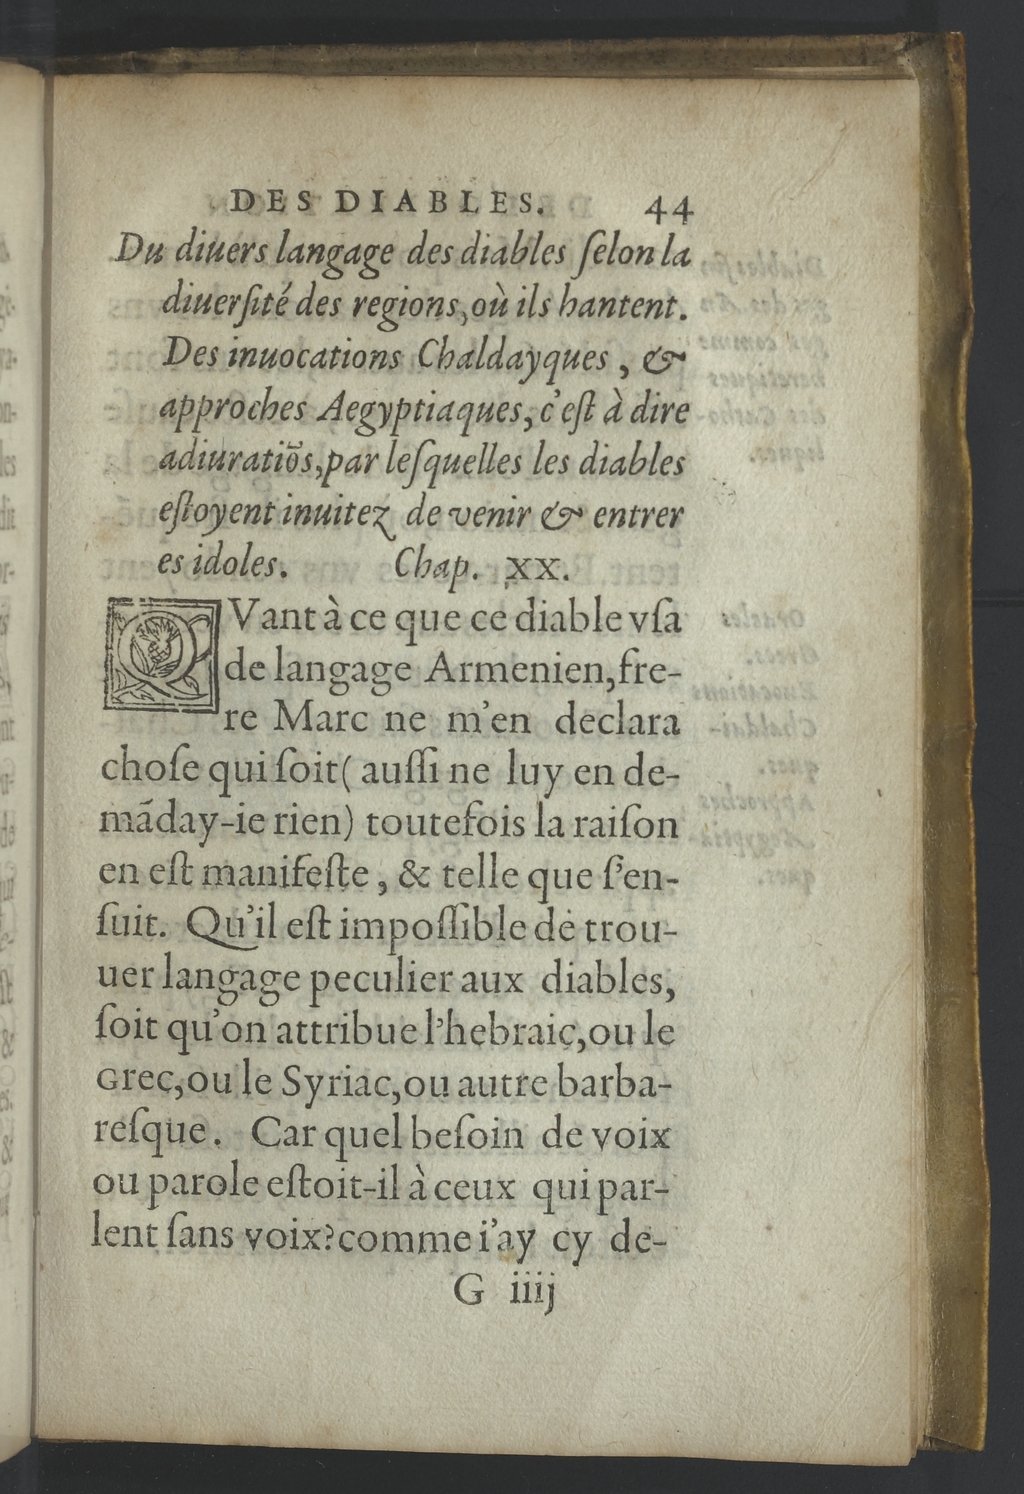 DES DIABLES. 44
Du diuers langage des diables ſelon la
diuerſité des regions, où ils hantent.
Des inuocations Chaldayques, &
approches Aegyptiaques, c'eſt à dire
adiuratiõs, par leſquelles les diables
eſtoyent inuitez de venir & entrer
es idoles. Chap. XX.
QVant à ce que ce diable vſa
de langage Armenien, fre-
re Marc ne m'en declara
choſe qui ſoit (auſſi ne luy en de-
mãday-ie rien) toutefois la raiſon
en eſt manifeſte, & telle que ſ'en-
ſuit. Qu'il eſt impoſſible de trou-
uer langage peculier aux diables,
ſoit qu'on attribue l'hebraic, ou le
Grec, ou le Syriac, ou autre barba-
reſque. Car quel beſoin de voix
ou parole eſtoit-il à ceux qui par-
lent ſans voix? comme i'ay cy de-
G iiij